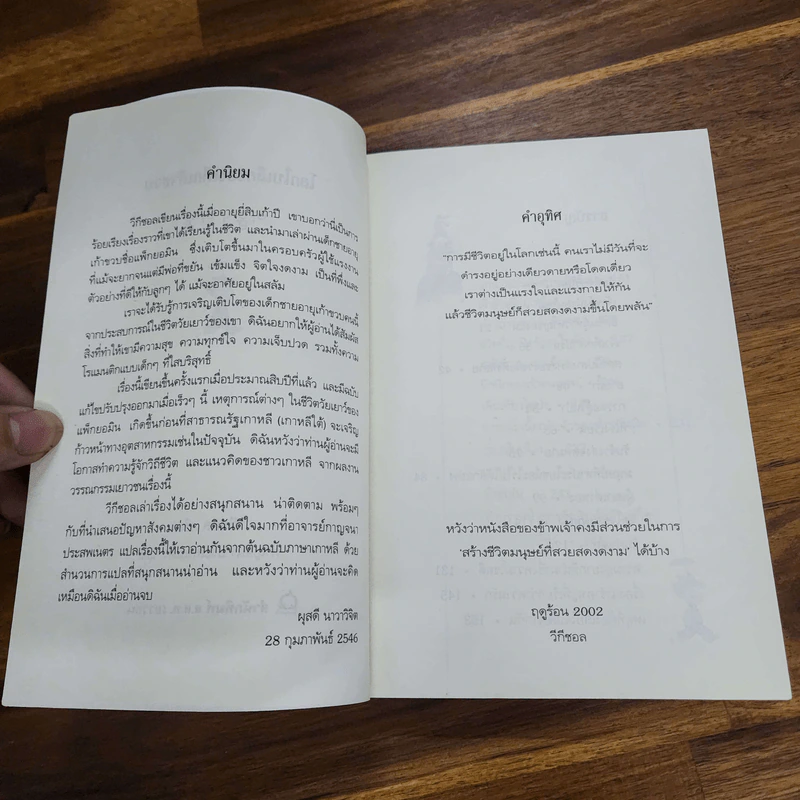 คำนิยม
วีกีซอลเขียนเรื่องนี้เมื่ออายุยี่สิบเก้าปี เขาบอกว่านี่เป็นการ
ร้อยเรียงเรื่องราวที่เขาได้เรียนรู้ในชีวิต และนำมาเล่าผ่านเด็กชายอายุ
เก้าขวบชื่อแพ็กยอมิน ซึ่งเติบโตขึ้นมาในครอบครัวผู้ใช้แรงงาน
ที่แม้จะยากจนแต่มีพ่อที่ขยัน เข้มแข็ง จิตใจงดงาม เป็นที่พึ่งและ
ตัวอย่างที่ดีให้กับลูกๆ ได้ แม้จะอาศัยอยู่ในสลัม
เราจะได้รับรู้การเจริญเติบโตของเด็กชายอายุเก้าขวบคนนี้
จากประสบการณ์ในชีวิตวัยเยาว์ของเขา ดิฉันอยากให้ผู้อ่านได้สัมผัส
สิ่งที่ทำให้เขามีความสุข ความทุกข์ใจ ความเจ็บปวด รวมทั้งความ
โรแมนติกแบบเด็กๆ ที่ใสบริสุทธิ์
เรื่องนี้เขียนขึ้นครั้งแรกเมื่อประมาณสิบปีที่แล้ว และมีฉบับ
แก้ไขปรับปรุงออกมาเมื่อเร็วๆ นี้ เหตุการณ์ต่างๆ ในชีวิตวัยเยาว์ของ
แพ็กยอมิน เกิดขึ้นก่อนที่สาธารณรัฐเกาหลี (เกาหลีใต้) จะเจริญ
ก้าวหน้าทางอุตสาหกรรมเช่นในปัจจุบัน ดิฉันหวังว่าท่านผู้อ่านจะมี
โอกาสทำความรู้จักวิถีชีวิต และแนวคิดของชาวเกาหลี จากผลงาน
วรรณกรรมเยาวชนเรื่องนี้
วีกีซอลเล่าเรื่องได้อย่างสนุกสนาน น่าติดตาม พร้อมๆ
กับที่นำเสนอปัญหาสังคมต่างๆ ดิฉันดีใจมากที่อาจารย์กาญจนา
ประสพเนตร แปลเรื่องนี้ให้เราอ่านกันจากต้นฉบับภาษาเกาหลี ด้วย
สำนวนการแปลที่สนุกสนานน่าอ่าน และหวังว่าท่านผู้อ่านจะคิด
เหมือนดิฉันเมื่ออ่านจบ
ผุสดี นาวาวิจิต
28 กุมภาพันธ์ 2546
คำอุทิศ
"การมีชีวิตอยู่ในโลกเช่นนี้ คนเราไม่มีวันที่จะ
ดำรงอยู่อย่างเดียวดายหรือโดดเดี่ยว
เราต่างเป็นแรงใจและแรงกายให้กัน
แล้วชีวิตมนุษย์ก็สวยสดงดงามขึ้นโดยพลัน"
หวังว่าหนังสือของข้าพเจ้าคงมีส่วนช่วยในการ
'สร้างชีวิตมนุษย์ที่สวยสดงดงาม' ได้บ้าง
ฤดูร้อน 2002
วีกีซอล